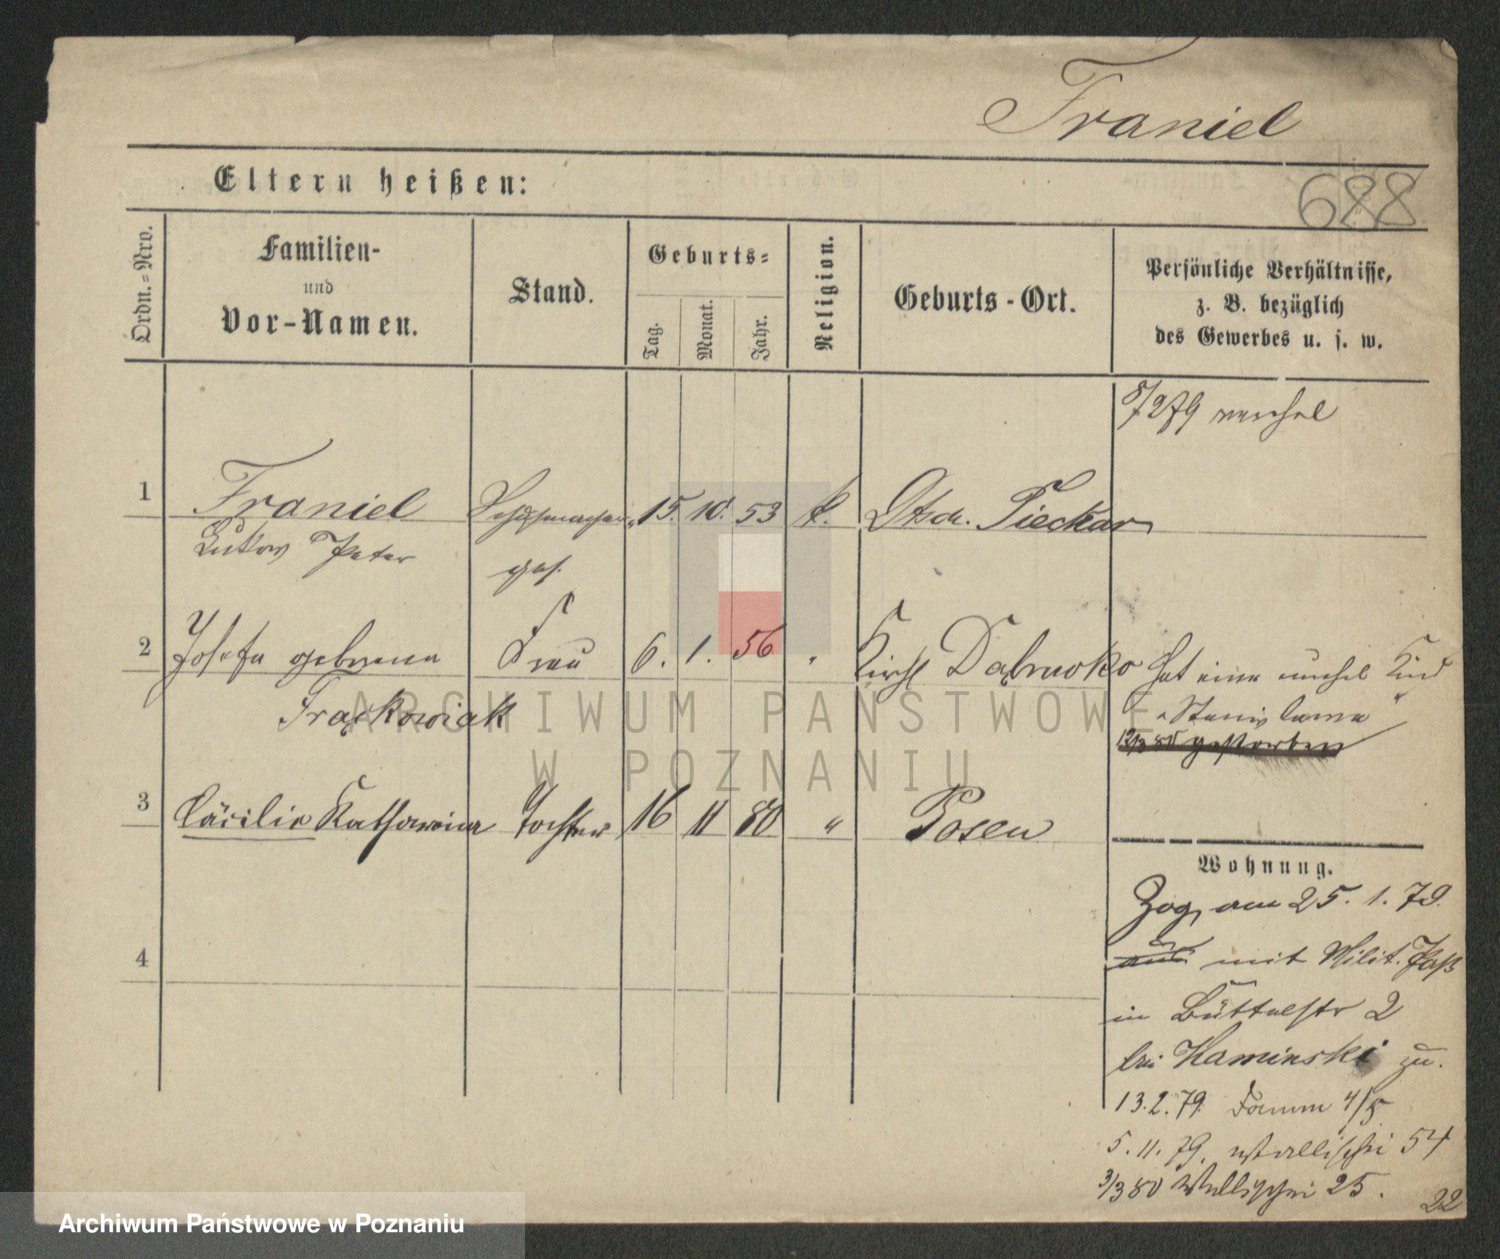 Franiel
688
Eltern heißen:
Ordn.=Nro.
Familien-
und
Vor-Namen.
Stand.
Geburts=
Tag.
Monat.
Jahr.
Religion.
Geburts-Ort.
Persönliche Verhältnisse,
z. B. bezüglich
des Gewerbes u. s. w.
8/279
1 Franiel 15. 10. 53 k. Pieckar
Peter
ges.
2 Josefa geborene Frau 6. 1. 56 " Kirchl Dabrowko hat eine unehel Kind
Frackowiak
"Stanislawa"
gestorben
3 Cäcilie Katharina Tochter 16 11 80 " Posen
Wohnung.
Zog am 25. 1. 79.
mit Milit. Paß
4
in Büttelstr 2
bei Kaminski zu.
13.2.79. Damm 4/5
5. 11. 79. Wallischei 54
3/3 80 Wallischei 25.
22
ARCHIWUM PAŃSTWOWE
W POZNANIU
Archiwum Państwowe w Poznaniu